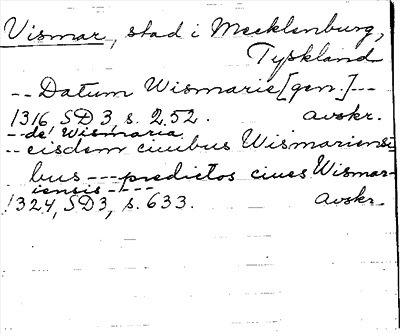 Vismar, stad i Mecklenburg,
Tyskland
-- Datum Wismarie [gen.] ---
1316 SD 3, s. 252. avskr.
-- de Wismaria
-- eisdem ciuibus Wismariensi
bus --- predictos ciues Wismar-
iensis ----
1324, SD3, s. 633. avskr.